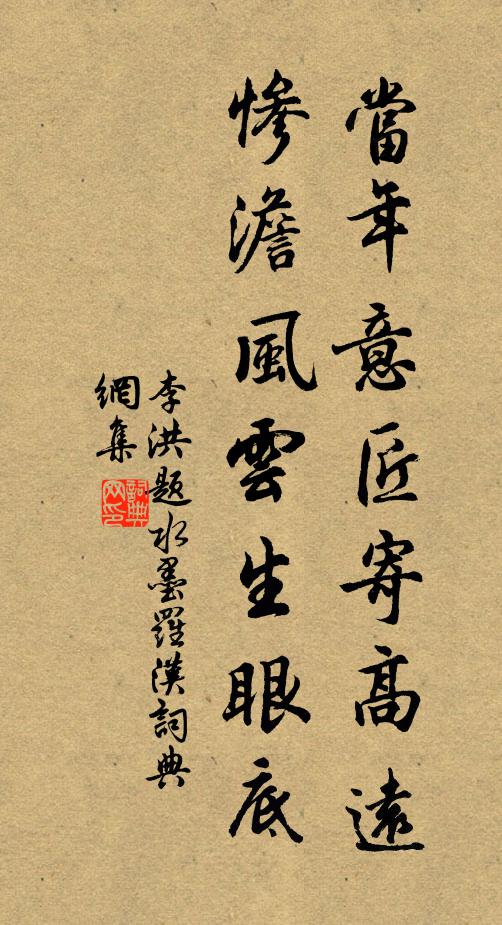 當年意匠寄高遠
慘澹風雲生眼底
李洪題水墨羅漢詞典
網集
詞典
網印